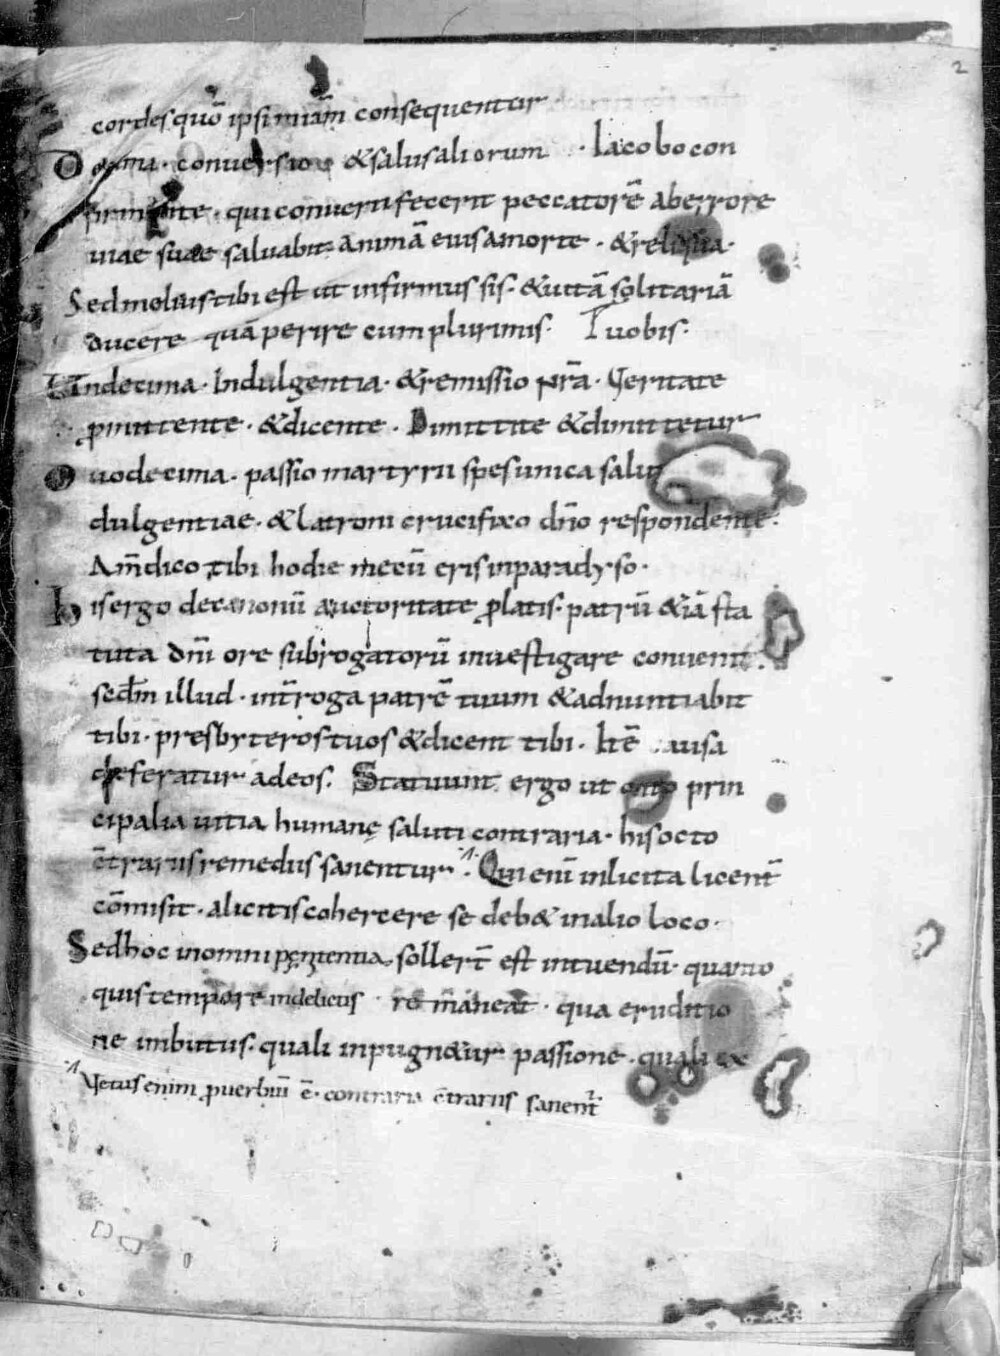 2
cordes quō ipsi miām consequentur
conuersio & salus aliorum · Iacobo con
firmante · qui conuerti fecerit peccatorē ab errore
uiae suae saluabit animā eius a morte · & reliqua ·
Sed melius tibi est ut infirmus sis · & uitā solitariā
ducere quā perire cum plurimis · uobis ·
Undecima · Indulgentia · & remissio nr̄a · Ueritate
p̱mittente · & dicente · Dimittite & dimittetur
Duodecima · passio martyrii spes unica salu
dulgentiae · & latroni crucifixo dn̄o respondente ·
Am̄ dico tibi hodie mecū eris in paradyso ·
his ergo de canonū auctoritate p̱latis · patrū & iā sta
tuta dn̄i ore subrogatorū inuestigare conuenit ·
sec̄dm illud · int̄roga patrē tuum & adnuntiabit
tibi · presbyteros tuos & dicent tibi · Itē causa
deferatur ad eos · Statuunt ergo ut octo prin
cipalia uitia humanę saluti contraria · his octo
c̄trariis remediis sanentur ·/· Qui eni̅ inlicita licent̄
cōmisit · a licitis cohercere se deb& in alio loco ·
Sed hoc in omni penitentia sollert̄ est intuendū · quanto
quis tempore in delictis re maneat · qua eruditio
ne inbutus · quali inpugn&ur passione · quali ex
·/· Uetus enim p̱uerbiū ē · contraria c̄trariis sanent̄